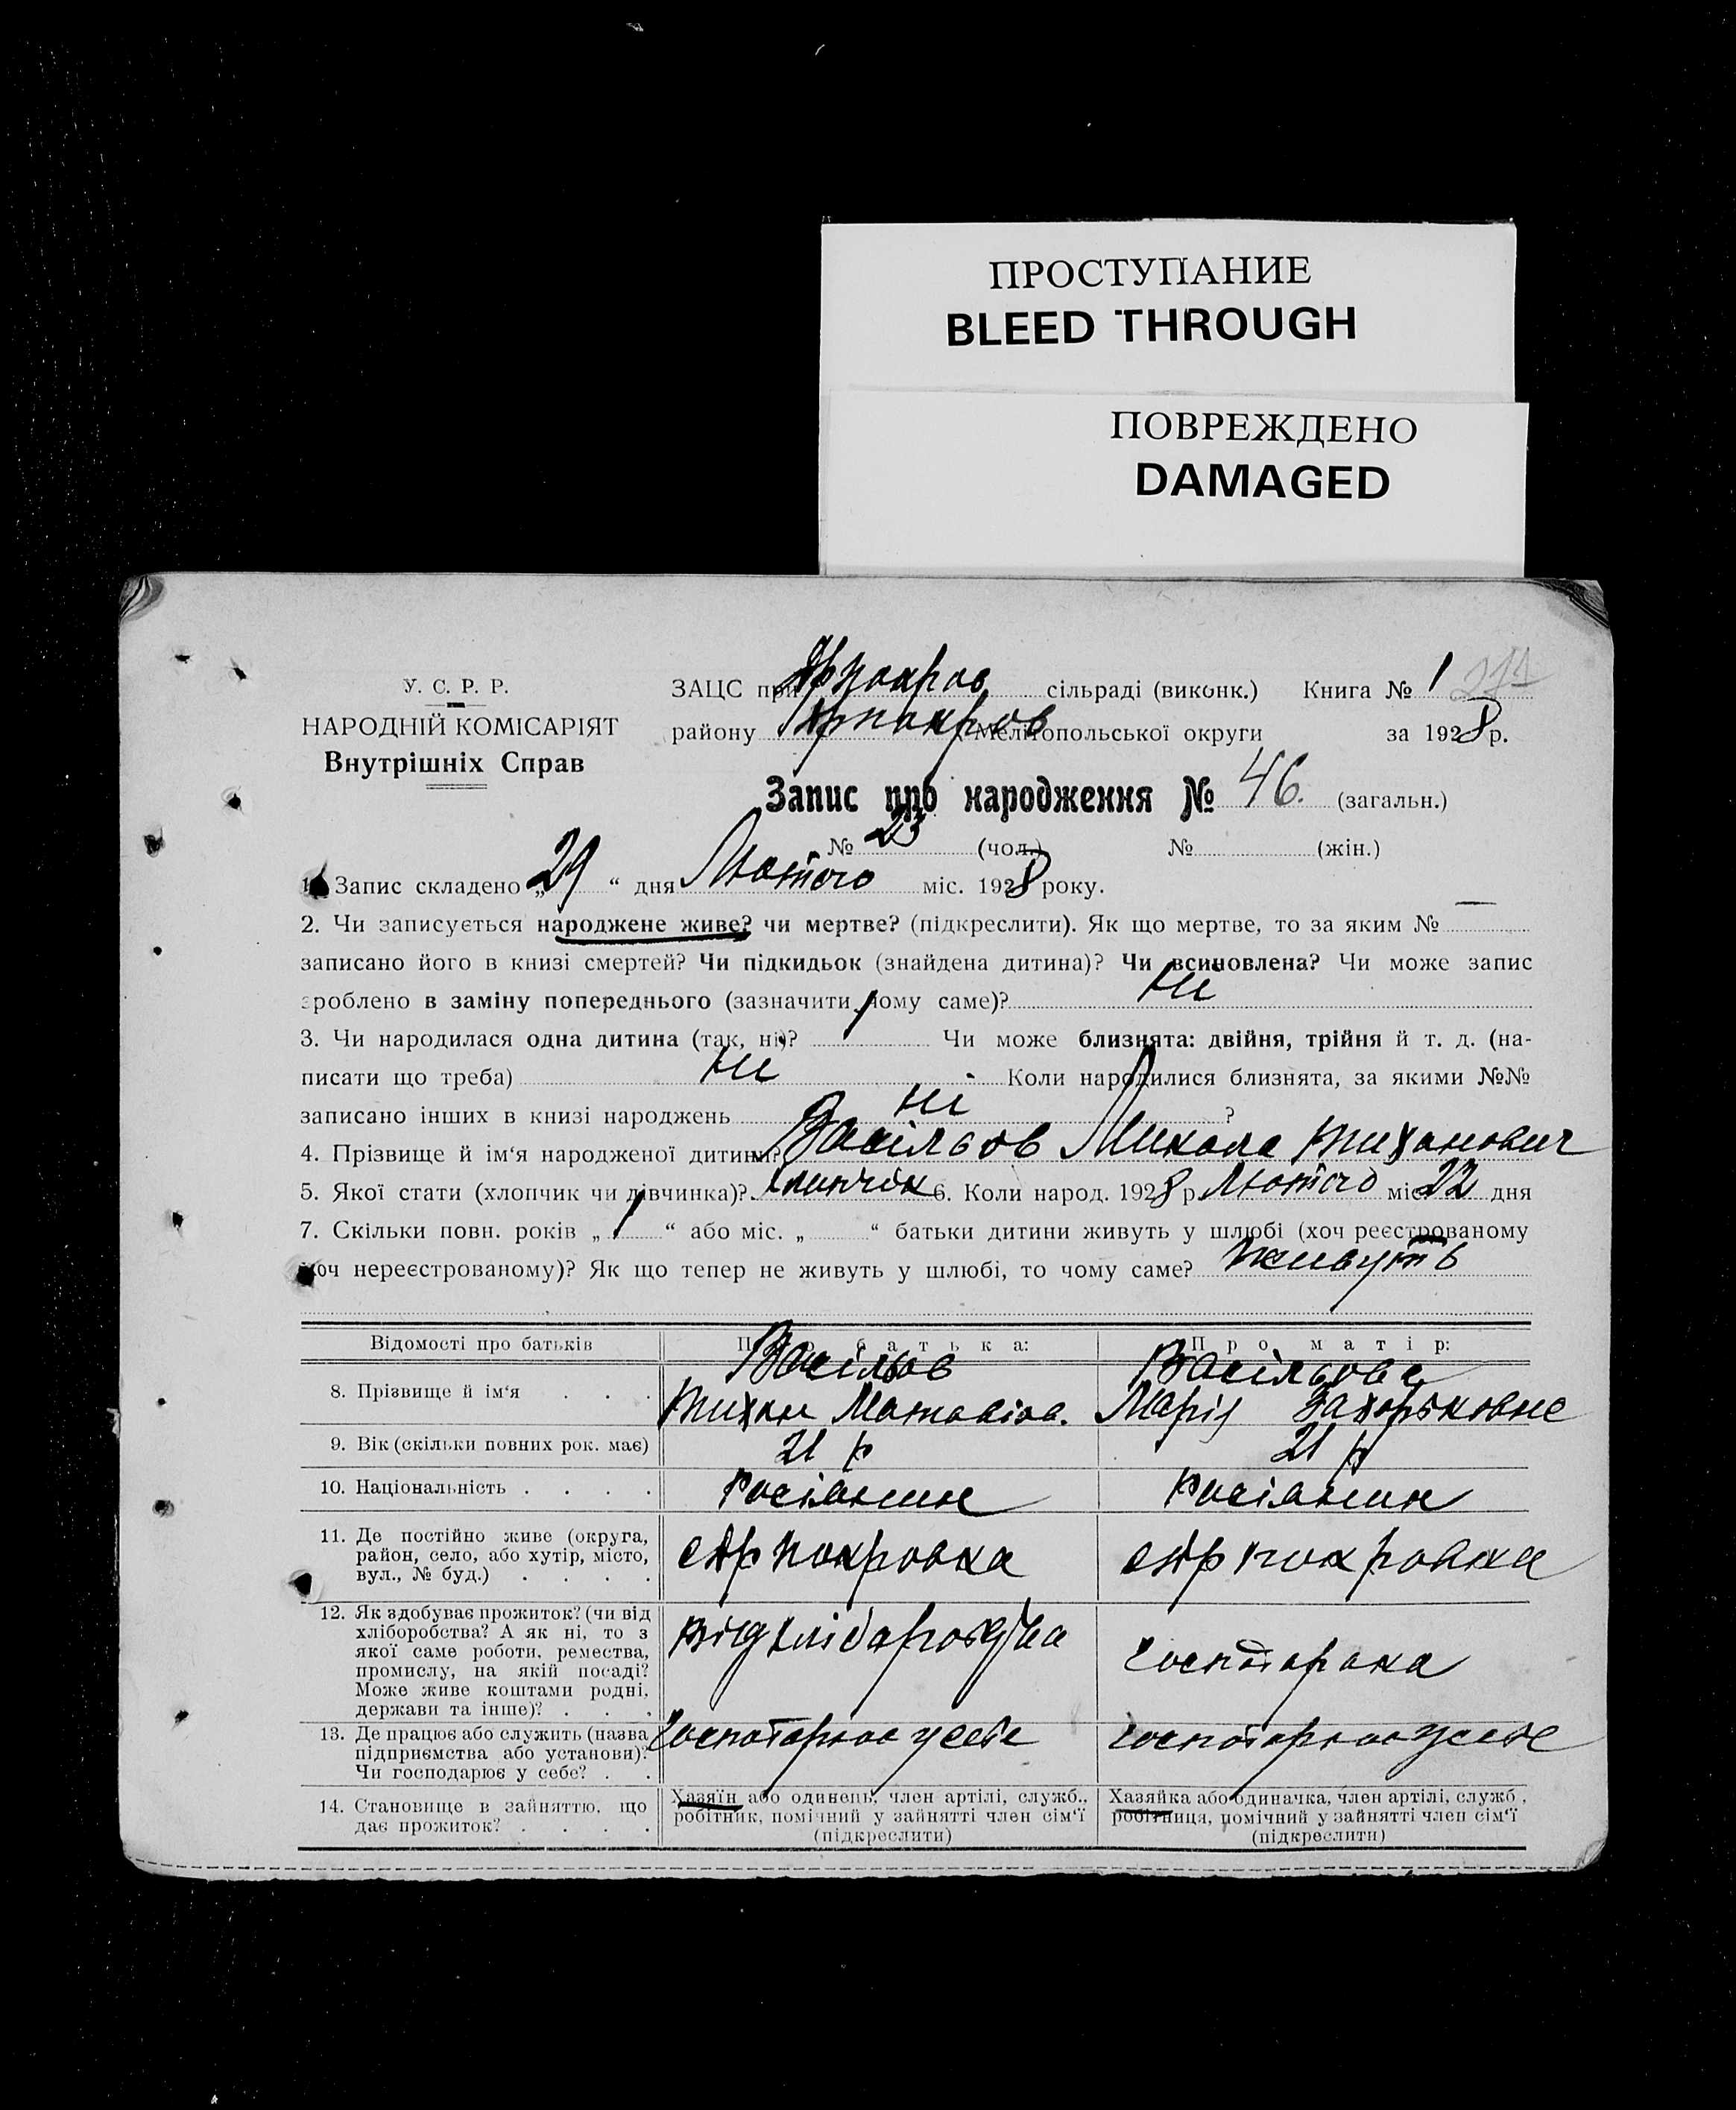 ПРОСТУПАНИЕ
BLEED THROUGH
ПОВРЕЖДЕНО
DAMAGED
У. С. Р. Р.
НАРОДНІЙ КОМІСАРІЯТ
Внутрішніх Справ
ЗАЦС при сільраді (виконк.) Книга № 1
району Мелітопольської округи за 1928 р.
Запис про народження № 46. (загальн.)
№ 23 (чол.) № (жін.)
1. Запис складено „29“ дня Лютого міс. 1928 року.
2. Чи записується народжене живе? чи мертве? (підкреслити). Як що мертве, то за яким № —
записано його в книзі смертей? Чи підкидьок (знайдена дитина)? Чи всиновлена? Чи може запис
зроблено в заміну попереднього (зазначити чому саме)? Ні
3. Чи народилася одна дитина (так, ні)? Чи може близнята: двійня, трійня й т. д. (на-
писати що треба) Ні Коли народилися близнята, за якими №№
записано інших в книзі народжень ні ?
4. Прізвище й ім‘я народженої дитини? Васільов Микола Тиханович
5. Якої стати (хлопчик чи дівчинка)? 6. Коли народ. 1928 р. Лютого міс. 22 дня
7. Скільки повн. років „1“ або міс. „ “ батьки дитини живуть у шлюбі (хоч реєстрованому
хоч нереєстрованому)? Як що тепер не живуть у шлюбі, то чому саме? живуть
Відомості про батьків Про батька: Про матір:
8. Прізвище й ім‘я . . . Васільов Васільова
Тихан Марія
9. Вік (скільки повних рок. має) 21 р 21 р
10. Національність . . . . росіянин росіянин
11. Де постійно живе (округа,
район, село, або хутір, місто,
вул., № буд.) . . . .
12. Як здобуває прожиток? (чи від
хліборобства? А як ні, то з
якої саме роботи, ремества,
промислу, на якій посаді?
Може живе коштами родні,
держави та інше)? . . .
13. Де працює або служить (назва
підприємства або установи)?
Чи господарює у себе? . .
14. Становище в зайняттю, що
дає прожиток? . . . .
Хазяїн або одинець, член артілі, служб.,
робітник, помічний у зайнятті член сім‘ї
(підкреслити)
Хазяйка або одиначка, член артілі, служб.,
робітниця, помічний у зайнятті член сім‘ї
(підкреслити)